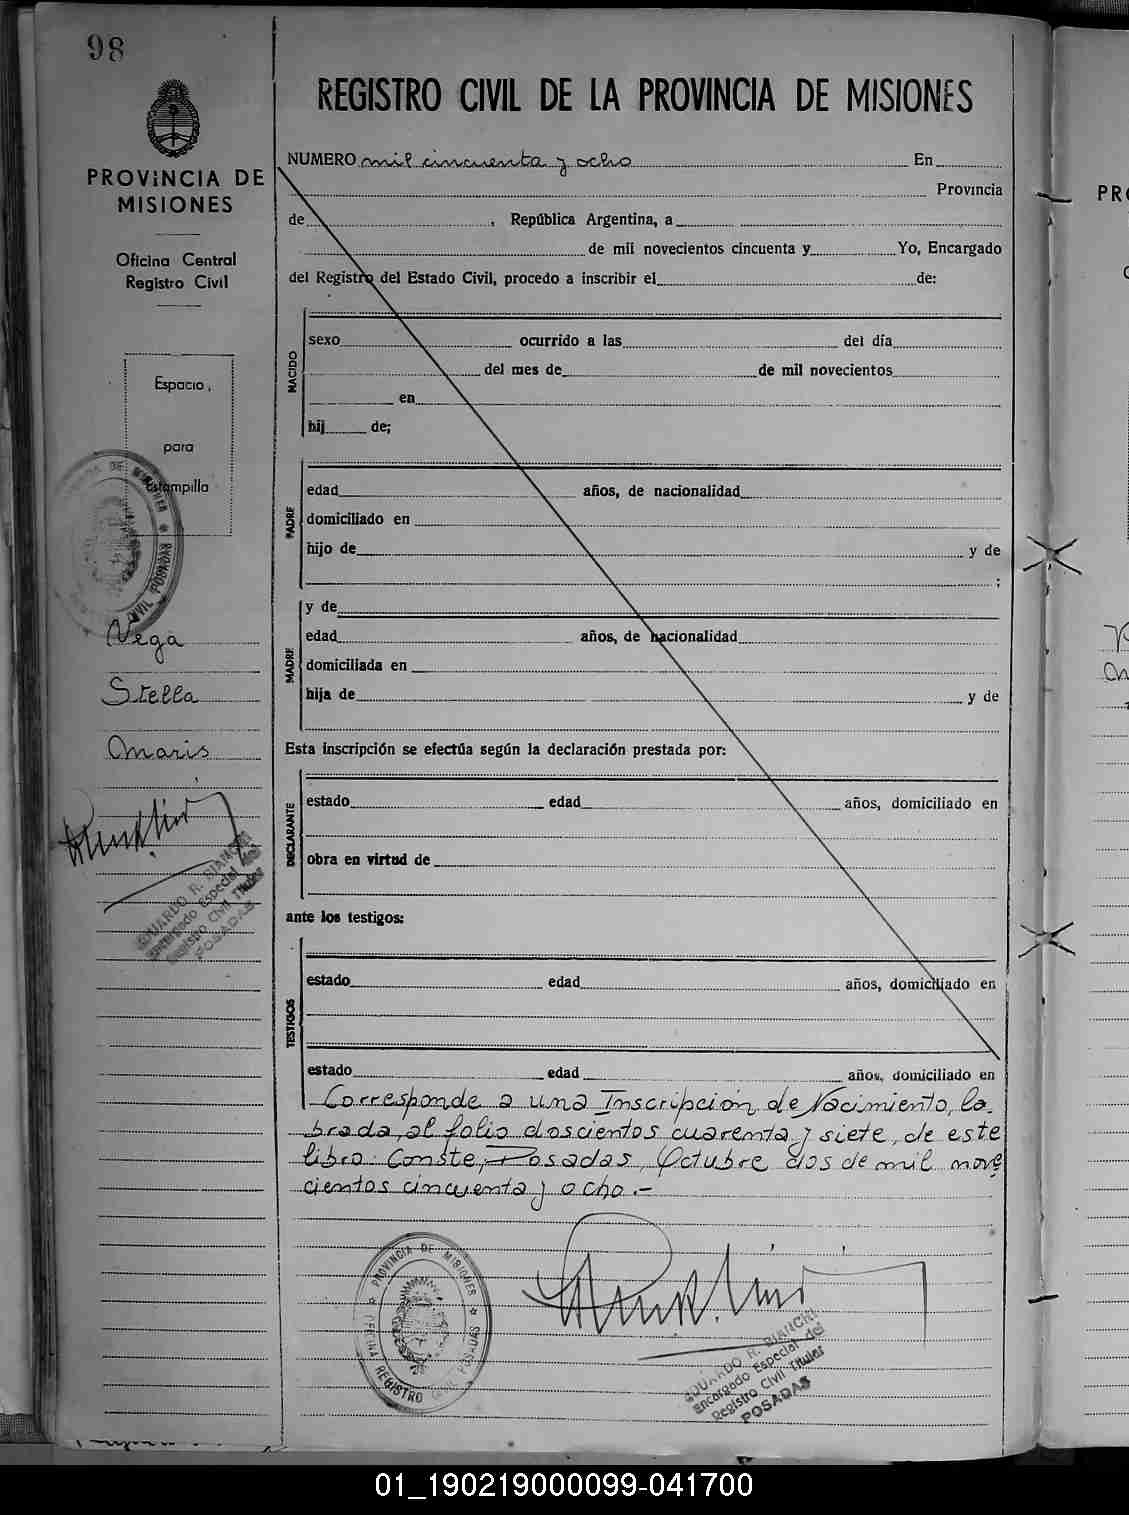 98
REGISTRO CIVIL DE LA PROVINCIA DE MISIONES
PROVINCIA DE
MISIONES
Oficina Central
Registro Civil
Espacio,
para
Estampilla
Vega
Stella
Maris
EDUARDO R. BIANCHI
Encargado Especial del
Registro Civil Titular
POSADAS
NUMERO mil cincuenta y ocho En
Provincia
de , República Argentina, a
de mil novecientos cincuenta y Yo, Encargado
del Registro del Estado Civil, procedo a inscribir el de:
NACIDO
sexo ocurrido a las del día
del mes de de mil novecientos
en
hij de;
PADRE
edad años, de nacionalidad
domiciliado en
hijo de y de
;
MADRE
y de
edad años, de nacionalidad
domiciliada en
hija de y de
Esta inscripción se efectúa según la declaración prestada por:
DECLARANTE
estado edad años, domiciliado en
obra en virtud de
ante los testigos:
TESTIGOS
estado edad años, domiciliado en
estado edad años, domiciliado en
Corresponde a una Inscripción de Nacimiento, la
brada, al folio doscientos cuarenta y siete, de este
libro. Conste, Posadas, Octubre dos de mil nove
cientos cincuenta y ocho.-
PROVINCIA DE MISIONES
OFICINA REGISTRO CIVIL POSADAS
EDUARDO R. BIANCHI
Encargado Especial del
Registro Civil Titular
POSADAS
PRO
01_190219000099-041700